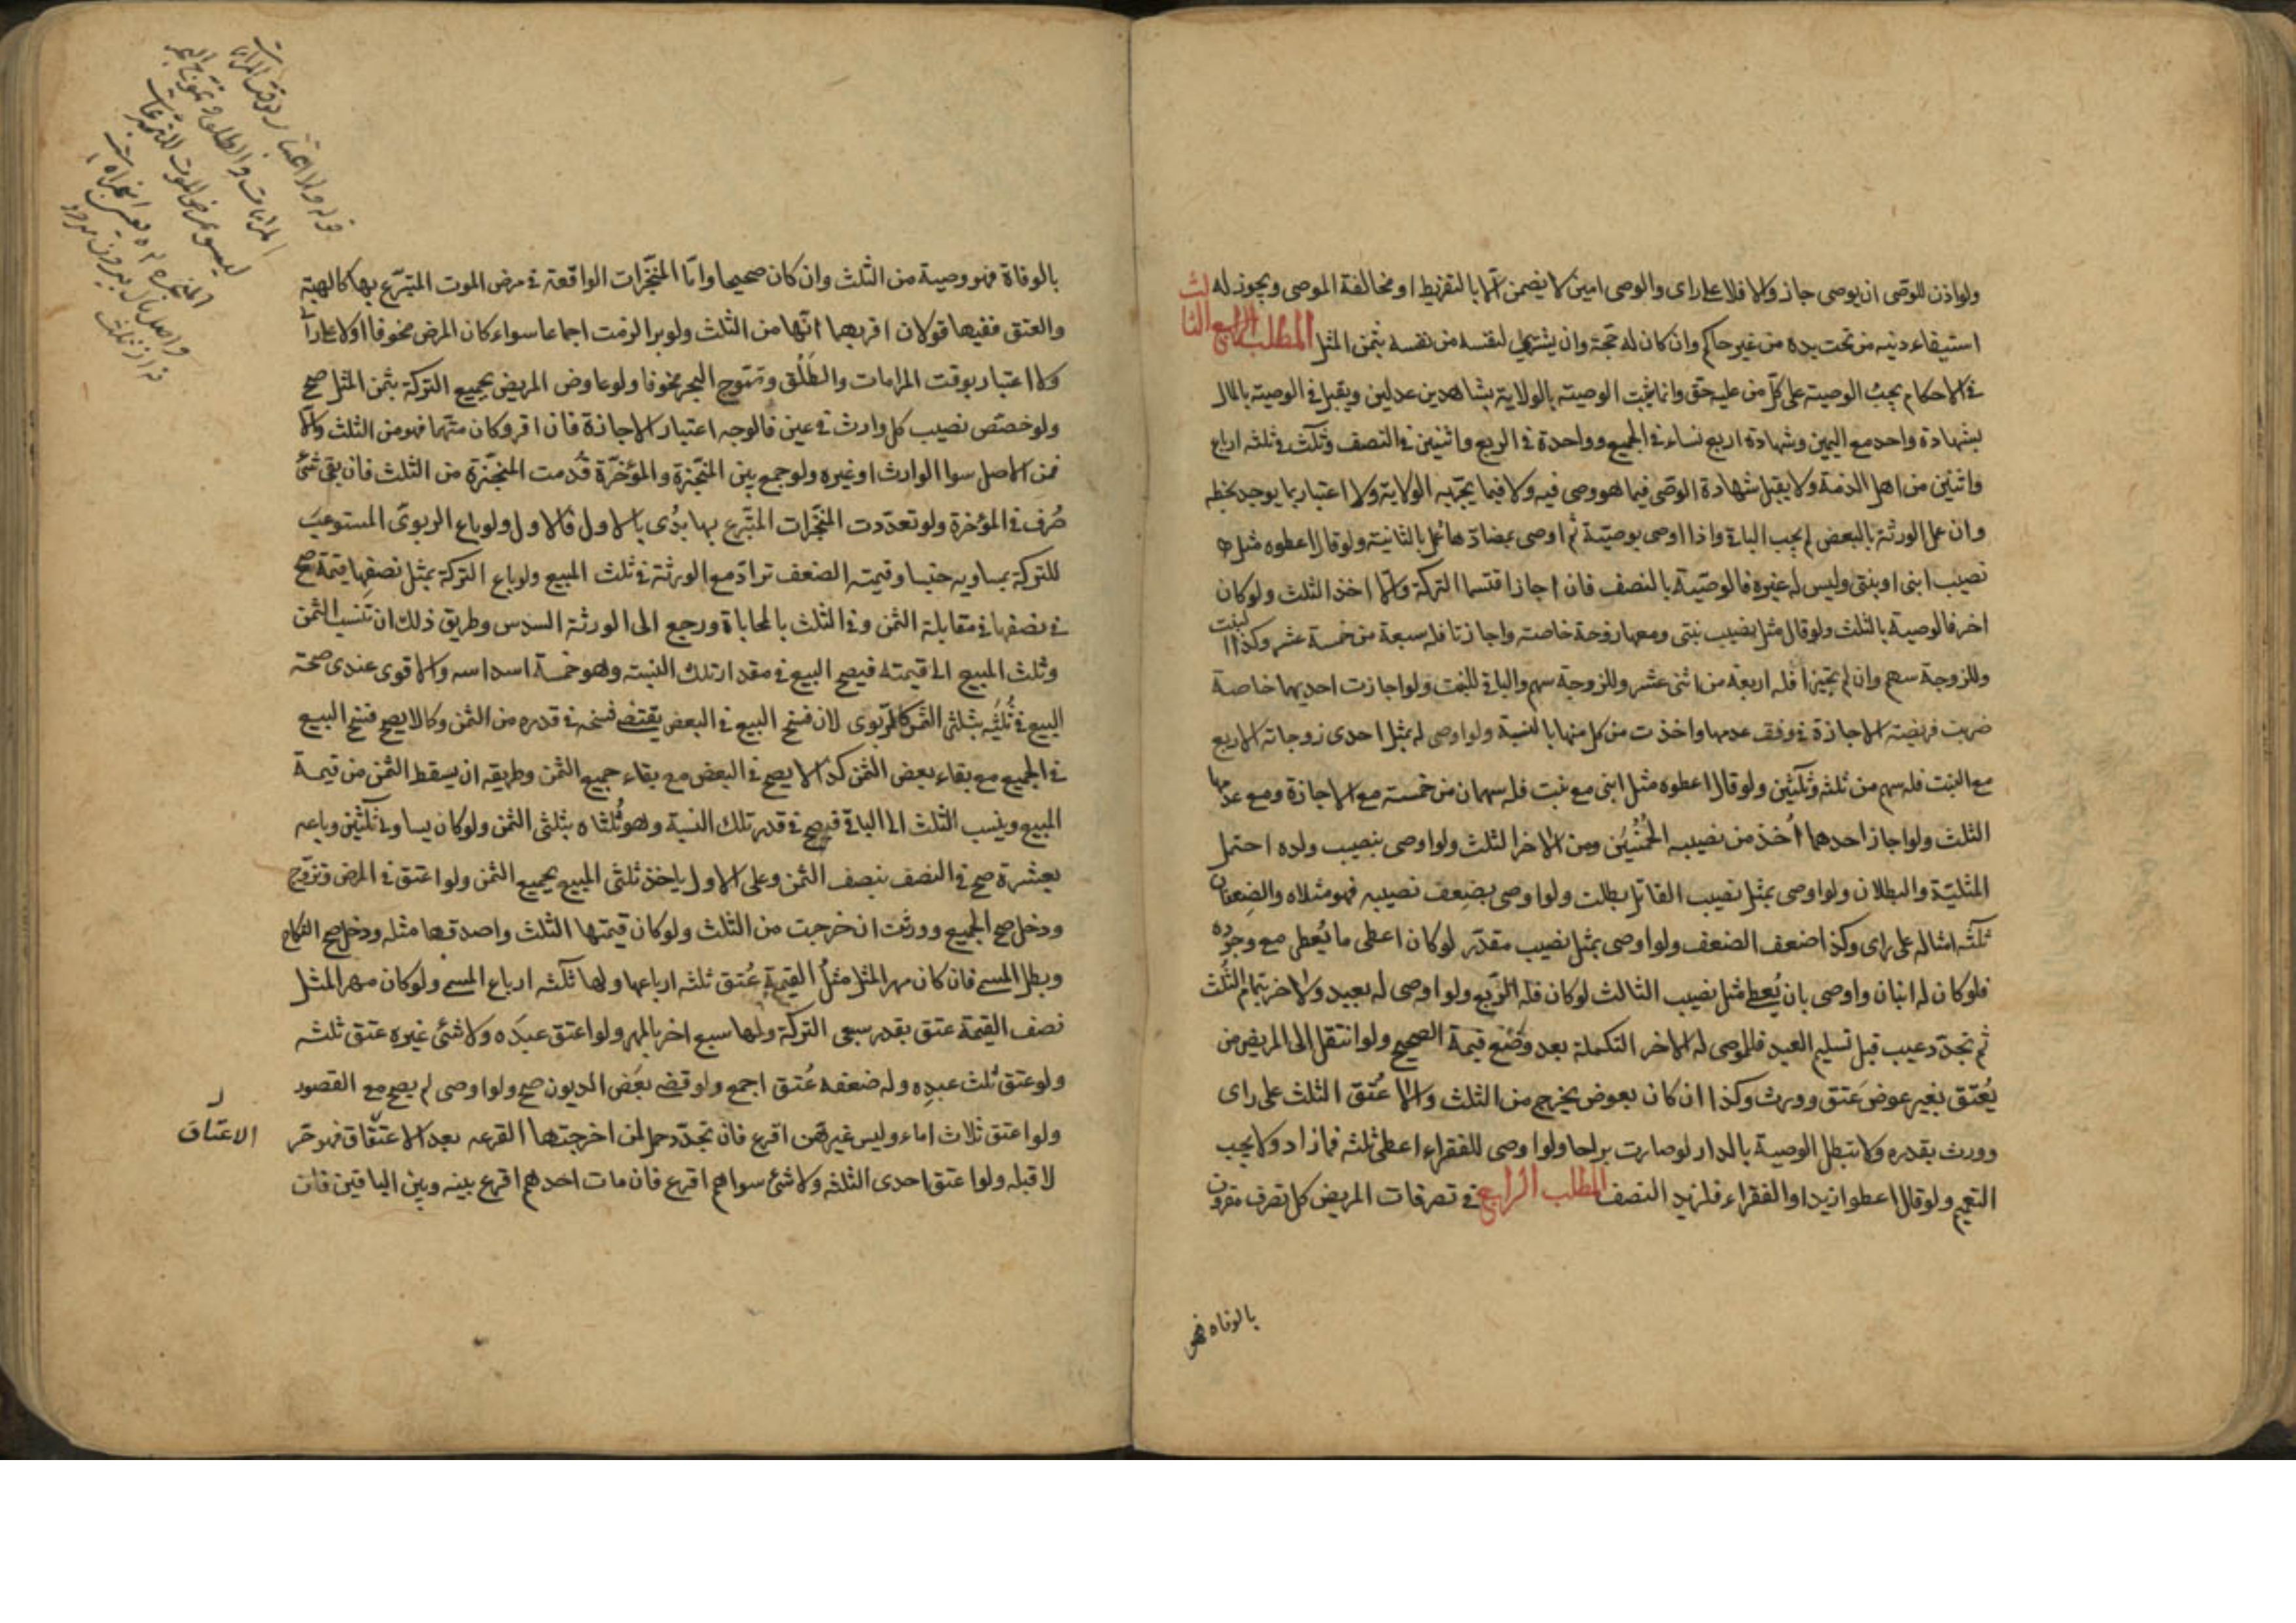 ولو اذن للوصى ان يوصى جاز والا فلا على راى والوصى امين لا يضمن الا بالتفريط او مخالفة الموصى ويجوز له
استيفاء دينه من تحت يده من غير حاكم وان كان له حجة وان يشترى لنفسه من نفسه بثمن المثل المطلب الثالث
فى الاحكام يجب الوصية على كل من عليه حق وانما يثبت الوصية بالولاية بشاهدين عدلين ويقبل فى الوصية بالمال
بشهادة واحد مع اليمين وشهادة اربع نساء فى الجميع وواحدة فى الربع واثنين فى النصف وثلث فى ثلثه ارباع
واثنين من اهل الذمة ولا يقبل شهادة الوصى فيما هو وصى فيه ولا فيما يجر به الولاية ولا اعتبار بما يوجد بخطه
وان عمل الورثة بالبعض لم يجب الباقى واذا اوصى بوصية ثم اوصى بمضادها عمل بالثانية ولو قال اعطوه مثل
نصيب ابنى او بنتى وليس له غيره فالوصية بالنصف فان اجاز اقتسما التركة والا اخذ الثلث ولو كان
اخر فالوصية بالثلث ولو قال مثل نصيب بنتى ومعها زوجة خاصة واجازتا فله سبعة من خمسة عشر وكذا البنت
وللزوجة سهم وان لم يجيزا فله اربعة من اثنى عشر وللزوجة سهم والباقى للبنت ولو اجازت احديهما خاصة
ضربت فريضة الاجازة فى وفق عدمها واخذت من كل منهما بالنسبة ولو اوصى له بمثل احدى زوجاته الاربع
مع البنت فله سهم من ثلثه وثلثين ولو قال اعطوه مثل ابنى مع بنت فله سهمان من خمسة مع الاجازة ومع عدمها
الثلث ولو اجاز احدهما اُخذ من نصيبه الخُمُسَيْن ومن الاخر الثلث ولو اوصى بنصيب ولده احتمل
المثلية والبطلان ولو اوصى بمثل نصيب القاتل بطلت ولو اوصى بضعف نصيبه فهو مثلاه والضعفان
ثلثه امثاله على راى وكذا ضعف الضعف ولو اوصى بمثل نصيب مقدر لو كان اعطى ما يُعطى مع وجوده
فلو كان له ابنان واوصى بان يُعطى مثل نصيب الثالث لو كان فله الربع ولو اوصى له بعبد ولاخر بتمام الثلث
ثم تجدد عيب قبل تسليم العبد فللموصى له الاخر التكملة بعد وضع قيمة الصحيح ولو انتقل الى المريض من
يُعتق بغير عوض عتق وورث وكذا ان كان بعوض يخرج من الثلث والا عُتق الثلث على راى
وورث بقدره ولا تبطل الوصية بالدار لو صارت براحا ولو اوصى للفقراء اعطى ثلثه فمازاد ولا يجب
التعميم ولو قال اعطوا زيدا والفقراء فلزيد النصف المطلب الرابع فى تصرفات المريض كل تصرف مقرون
بالوفاه فهو
بالوفاة فهو وصية من الثلث وان كان صحيحا واما المنجزات الواقعة فى مرض الموت المتبرع بها كالهبة
والعتق ففيها قولان اقربهما انها من الثلث ولو برا لزمت اجماعا سواء كان المرض مخوفا اولا على راى
ولا اعتبار بوقت المرامات والطلق وتموج البحر مخوفا ولو عاوض المريض بجميع التركة بثمن المثل صح
ولو خصص نصيب كل وارث فى عين فالوجه اعتبار الاجازة فان اقر وكان متهما فهو من الثلث والا
فمن الاصل سوا الوارث او غيره ولو جمع بين المنجزة والمؤخرة قُدمت المنجزة من الثلث فان بقى شئ
صُرف فى المؤخرة ولو تعددت المنجزات المتبرع بها بدُى بالاول فالاول ولو باع الربوى المستوعب
للتركة بمساويه جنسا وقيمته الضعف ترادّ مع الورثة فى ثلث المبيع ولو باع التركة بمثل نصفها قيمة صح
فى نصفها فى مقابلة الثمن وفى الثلث بالمحاباة ورجع الى الورثة السدس وطريق ذلك ان تنسب الثمن
وثلث المبيع الى قيمته فيصح البيع فى مقدار تلك النسبة وهو خمسة اسداسه والاقوى عندى صحة
البيع فى ثُلثَيْه بثلثى الثمن كالربوى لان فسخ البيع فى البعض يقتضى فسخه فى قدره من الثمن وكما لا يصح فسخ البيع
فى الجميع مع بقاء بعض الثمن كذا لا يصح فى البعض مع بقاء جميع الثمن وطريقه ان يسقط الثمن من قيمة
المبيع وينسب الثلث الى الباقى فيصح فى قدر تلك النسبة وهو ثُلثاه بثلثى الثمن ولو كان يساوى ثلثين وباعه
بعشرة صح فى النصف بنصف الثمن وعلى الاول ياخذ ثلثى المبيع بجميع الثمن ولو اعتق فى المرض وتزوج
ودخل صح الجميع وورثت ان خرجت من الثلث ولو كان قيمتها الثلث واصدقها مثله ودخل صح النكاح
وبطل المسمى فان كان مهر المثل مثلُ القيمة عُتق ثلثه ارباعها ولها ثلثه ارباع المسمى ولو كان مهر المثل
نصف القيمة عتق بقدر سبعى التركة ولها سبع اخر بالمهر ولو اعتق عبده ولا شئ غيره عتق ثلثه
ولو عتق ثلث عبدِه وله ضعفه عُتق اجمع ولو قضى بعَض الديون صح ولو اوصى لم يصح مع القصور
ولو اعتق ثلاث اماء وليس غيرهن اقرع فان تجدد حمل لمن اخرجتها القرعه بعد الاعتقاق فهو حر
لا قبله ولو اعتق احدى الثلثه ولا شئ سواهم اقرع فان مات احدهم اقرع بينه وبين الباقين فان
الاعتاق